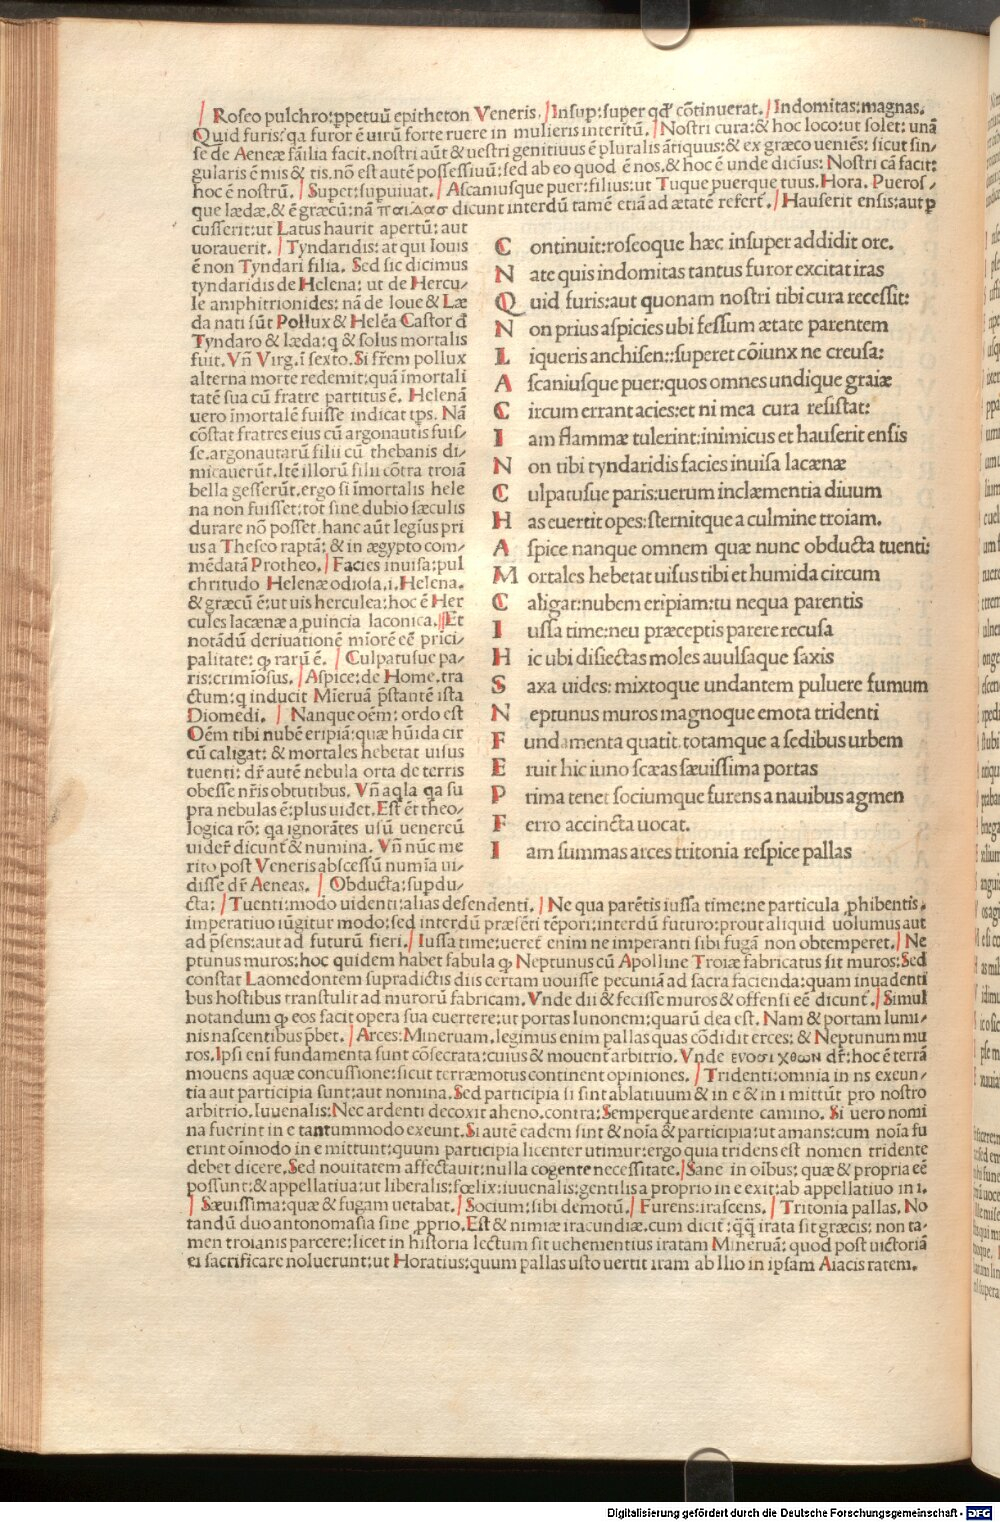 Roseo pulchro:ꝑpetuū epitheton Veneris. Insup:super qđ cōtinuerat. Indomitas:magnas.
Quid furis:qa furor ē uirū forte ruere in mulieris interitū. Nostri cura:& hoc loco:ut solet: unā
se de Aeneæ fāilia facit.nostri aūt & uestri genitiuus ē pluralis ātiquus:& ex græco ueniēs: sicut sin/
gularis ē mis & tis.nō est autē possessiuū:sed ab eo quod ē nos.& hoc ē unde dicius: Nostri cā facit:
hoc ē nostrū. Supet:supuiuat. Ascaniusque puer:filius:ut Tuque puerque tuus.Hora. Pueros/
que lædæ.& ē græcū:nā παιΔασ dicunt interdū tamē etiā ad ætatē refert̄. Hauserit ensis:aut ꝑ
cusserit:ut Latus haurit apertū: aut
uorauerit. Tyndaridis:at qui Iouis
ē non Tyndari filia. Sed sic dicimus
tyndaridis de Helena: ut de Hercu/
le amphitrionides: nā de Ioue & Læ
da nati sūt Pollux & Helēa Castor đ
Tyndaro & læda:q & solus mortalis
fuit. Vñ Virg.ī sexto.Si fr̄em pollux
alterna morte redemit:quā īmortali
tatē sua cū fratre partitus ē. Helenā
uero īmortalē fuisse indicat tp̄s. Nā
cōstat fratres eius cū argonautis fuis/
se.argonautarū filii cū thebanis di/
micauerūt.Itē illorū filii cōtra troiā
bella gesserūt.ergo si īmortalis hele
na non fuisset:tot sine dubio sæculis
durare nō posset.hanc aūt legius pri
us a Theseo raptā: & in ægypto com/
mēdatā Protheo. Facies inuisa:pul
chritudo Helenæ odiosa.i.Helena.
& græcū ē:ut uis herculea:hoc ē Her
cules lacænæ a puincia laconica. Et
notādū deriuationē miorē eē prici/
palitate: ꝙ rarū ē. Culpatusue pa/
ris:crimiosus. Aspice:de Home.tra
ctum:q inducit Mieruā p̄stantē ista
Diomedi. Nanque oēm: ordo est
Oēm tibi nubē eripiā:quæ hūida cir
cū caligat: & mortales hebetat uisus
tuenti: dr̄ autē nebula orta de terris
obesse nr̄is obtutibus. Vñ aqla qa su
pra nebulas ē:plus uidet.Est ēt theo/
logica rō: qa ignorātes usū uenereū
uider̄ dicunt & numina. Vñ nūc me
rito post Veneris abscessū numīa ui/
disse dr̄ Aeneas. Obducta:supdu/
cta: Tuenti:modo uidenti:alias defendenti. Ne qua parētis iussa time:ne particula ꝓhibentis.
imperatiuo iūgitur modo:sed interdū præsēti tēpori:interdū futuro:prout aliquid uolumus aut
ad p̄sens:aut ad futurū fieri. Iussa time:ueret̄ enim ne imperanti sibi fugā non obtemperet. Ne
ptunus muros:hoc quidem habet fabula ꝙ Neptunus cū Apolline Troiæ fabricatus sit muros:Sed
constat Laomedontem supradictis diis certam uouisse pecuniā ad sacra facienda:quam inuadenti
bus hostibus transtulit ad murorū fabricam. Vnde dii & fecisse muros & offensi eē dicunt̄. Simul
notandum ꝙ eos facit opera sua euertere:ut portas Iunonem:quarū dea est. Nam & portam lumi/
nis nascentibus p̄bet. Arces:Mineruam.legimus enim pallas quas cōdidit erces: & Neptunum mu
ros.Ipsi enī fundamenta sunt cōsecrata:cuius & mouent̄ arbitrio. Vnde ενοσι χθων dr̄:hoc ē terrā
mouens aquæ concussione:sicut terræmotus continent opiniones. Tridenti:omnia in ns exeun/
tia aut participia sunt:aut nomina.Sed participia si sint ablatiuum & in e & in i mittūt pro nostro
arbitrio.Iuuenalis:Nec ardenti decoxit aheno.contra:Semperque ardente camino. Si uero nomi
na fuerint in e tantummodo exeunt.Si autē eadem sint & noīa & participia:ut amans:cum noīa fu
erint oīmodo in e mittunt:quum participia licenter utimur:ergo quia tridens est nomen tridente
debet dicere.Sed nouitatem affectauit:nulla cogente necessitate. Sane in oībus: quæ & propria eē
possunt:& appellatiua:ut liberalis:fœlix:iuuenalis:gentilis a proprio in e exit:ab appellatiuo in i.
Sæuissima:quæ & fugam uetabat. Socium:sibi demotū. Furens:irascens. Tritonia pallas. No
tandū duo antonomasia sine ꝓprio.Est & nimiæ iracundiæ.cum dicit̄: q̄q̄ irata sit græcis: non ta/
men troianis parcere:licet in historia lectum sit uehementius iratam Mineruā: quod post uictoriā
ei sacrificare noluerunt:ut Horatius:quum pallas usto uertit iram ab Ilio in ipsam Aiacis ratem.
Continuit:roseoque hæc insuper addidit ore.
Nate quis indomitas tantus furor excitat iras
Quid furis:aut quonam nostri tibi cura recessit:
Non prius aspicies ubi fessum ætate parentem
Liqueris anchisen::superet cōiunx ne creusa:
Ascaniusque puer:quos omnes undique graiæ
Circum errant acies:et ni mea cura resistat:
Iam flammæ tulerint:inimicus et hauserit ensis
Non tibi tyndaridis facies inuisa lacænæ
Culpatusue paris:uerum inclæmentia diuum
Has euertit opes:sternitque a culmine troiam.
Aspice nanque omnem quæ nunc obducta tuenti:
Mortales hebetat uisus tibi et humida circum
Caligat:nubem eripiam:tu nequa parentis
Iussa time:neu præceptis parere recusa
Hic ubi disiectas moles auulsaque saxis
Saxa uides: mixtoque undantem puluere fumum
Neptunus muros magnoque emota tridenti
Fundamenta quatit.totamque a sedibus urbem
Eruit hic iuno scæas sæuissima portas
Prima tenet sociumque furens a nauibus agmen
Ferro accincta uocat.
Iam summas arces tritonia respice pallas
Digitalisierung gefördert durch die Deutsche Forschungsgemeinschaft - DFG